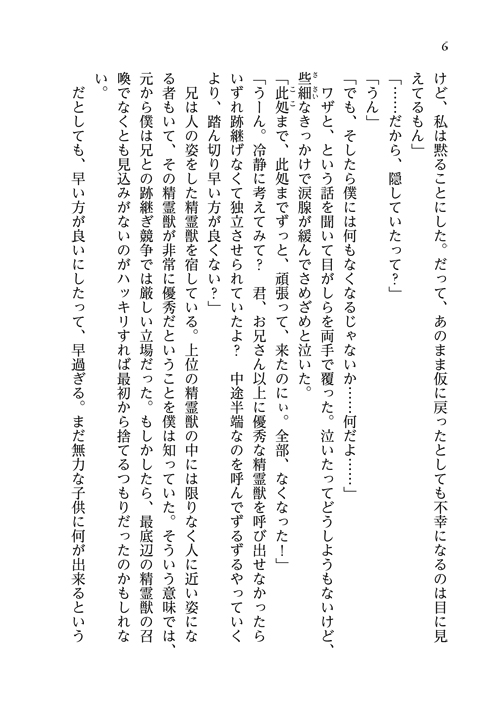 6
けど、私は黙ることにした。だって、あのまま仮に戻ったとしても不幸になるのは目に見
えてるもん」
「……だから、隠していたって？」
「うん」
「でも、そしたら僕には何もなくなるじゃないか……何だよ……」
　ワザと、という話を聞いて目がしらを両手で覆った。泣いたってどうしようもないけど、
些細なきっかけで涙腺が緩んでさめざめと泣いた。
「此処まで、此処までずっと、頑張って、来たのにぃ。全部、なくなった！」
「うーん。冷静に考えてみて？　君、お兄さん以上に優秀な精霊獣を呼び出せなかったら
いずれ跡継げなくて独立させられていたよ？　中途半端なのを呼んでずるずるやっていく
より、踏ん切り早い方が良くない？」
　兄は人の姿をした精霊獣を宿している。上位の精霊獣の中には限りなく人に近い姿にな
る者もいて、その精霊獣が非常に優秀だということを僕は知っていた。そういう意味では、
元から僕は兄との跡継ぎ競争では厳しい立場だった。もしかしたら、最底辺の精霊獣の召
喚でなくとも見込みがないのがハッキリすれば最初から捨てるつもりだったのかもしれな
い。
　だとしても、早い方が良いにしたって、早過ぎる。まだ無力な子供に何が出来るという